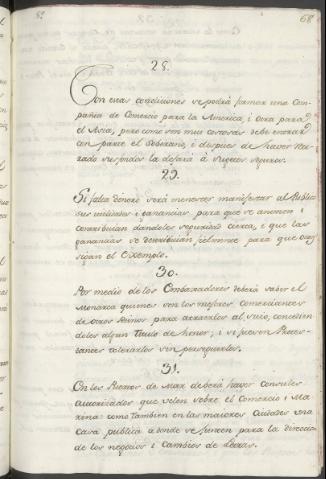 68
28.
Con estas condiciones se podrá formar una Com-
pañia de Comercio para la America, i otra para
el Asia, pero como son mui costosas debe entrar
con parte el Soberano, i despues de haver
sus fondos la dejará à sugetos seguros.
29.
Si falta dinero será menester manifestar al Publico
sus utilidades i ganancias para que se animen i
contribuian dandoles seguridad cierta, e que las
ganancias se distribuian fielmente para que otros
sigan el Exemplo.
30.
Por medio de los Embaxadores deberá saber el
Monarca quienes son los mejores comerciantes
de otros Reinos para atraerlos al suio, concedien
doles algun titulo de honor, i si fuesen Protes-
tantes tolerarlos sin perseguirlos.
31.
En los Puertos de Mar deberá haver Consules
autorizados que velen sobre el Comercio i Ma-
rina: como tambien en las maiores Ciudades una
casa publica adonde se junten para la direccion
de los negocios i Cambios de Letras.